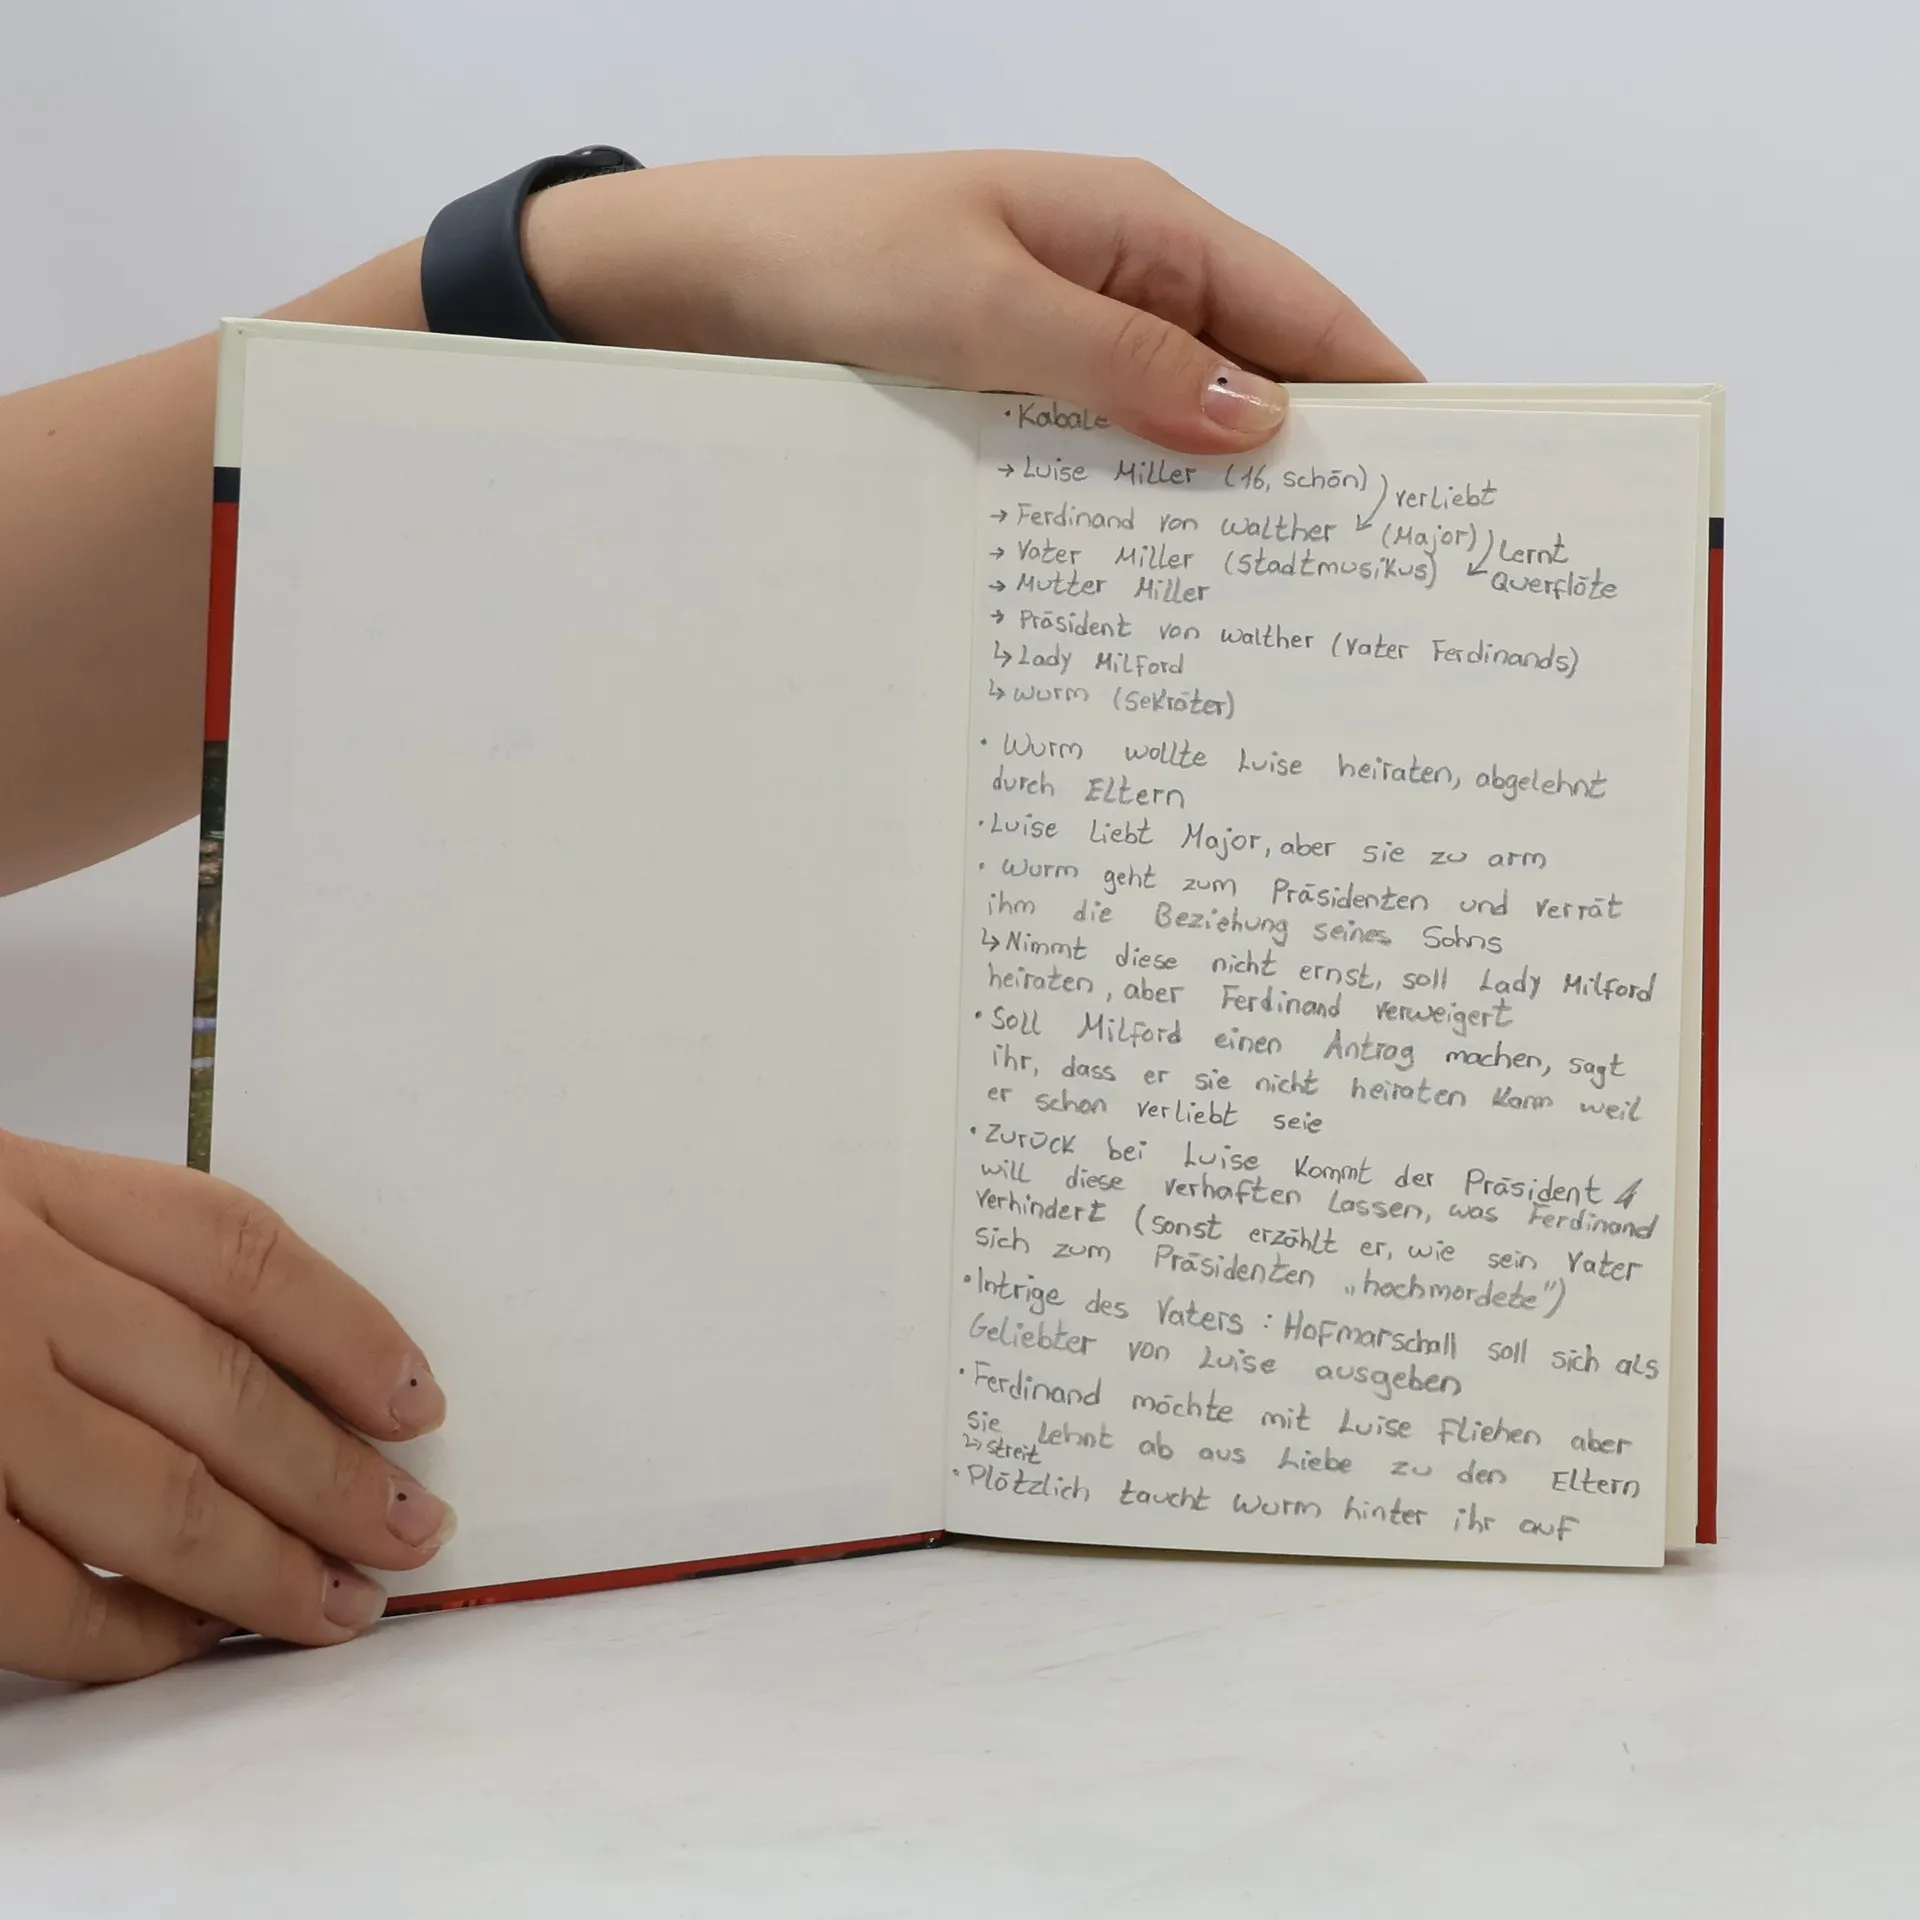 · Kabale
→ Luise Miller (16, schön) verliebt
→ Ferdinand von Walther (Major) Lernt
→ Vater Miller (Stadtmusikus) Querflöte
→ Mutter Miller
→ Präsident von Walther (Vater Ferdinands)
↳ Lady Milford
↳ Wurm (Sekräter)
· Wurm wollte Luise heiraten, abgelehnt
durch Eltern
· Luise liebt Major, aber sie zu arm
· Wurm geht zum Präsidenten und verrät
ihm die Beziehung seines Sohns
↳ Nimmt diese nicht ernst, soll Lady Milford
heiraten, aber Ferdinand verweigert
· Soll Milford einen Antrag machen, sagt
ihr, dass er sie nicht heiraten kann weil
er schon verliebt seie
· Zurück bei Luise kommt der Präsident &
will diese verhaften lassen, was Ferdinand
verhindert (sonst erzählt er, wie sein Vater
sich zum Präsidenten „hochmordete")
· Intrige des Vaters: Hofmarschall soll sich als
Geliebter von Luise ausgeben
· Ferdinand möchte mit Luise fliehen aber
sie lehnt ab aus Liebe zu den Eltern
↳ streit
· Plötzlich taucht Wurm hinter ihr auf